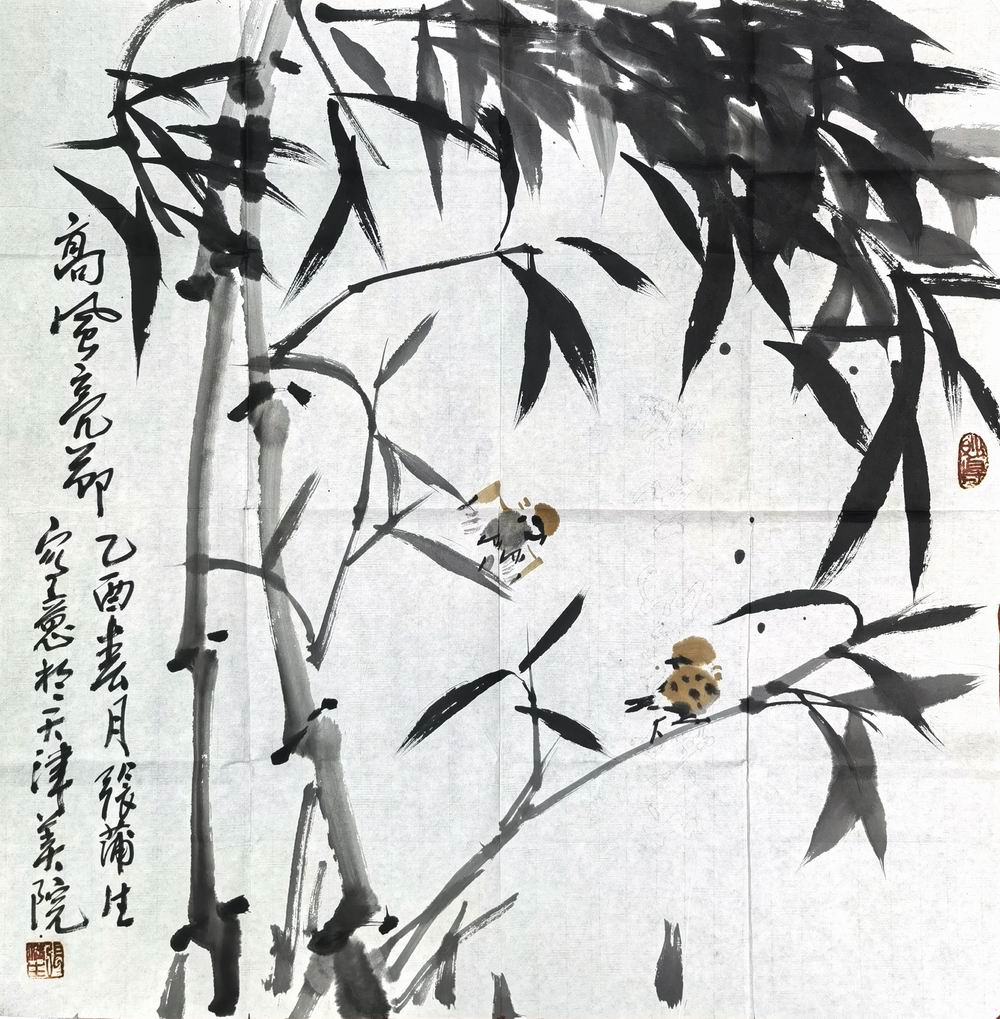 高風亮節
乙酉春月張蒲生
於天津美院